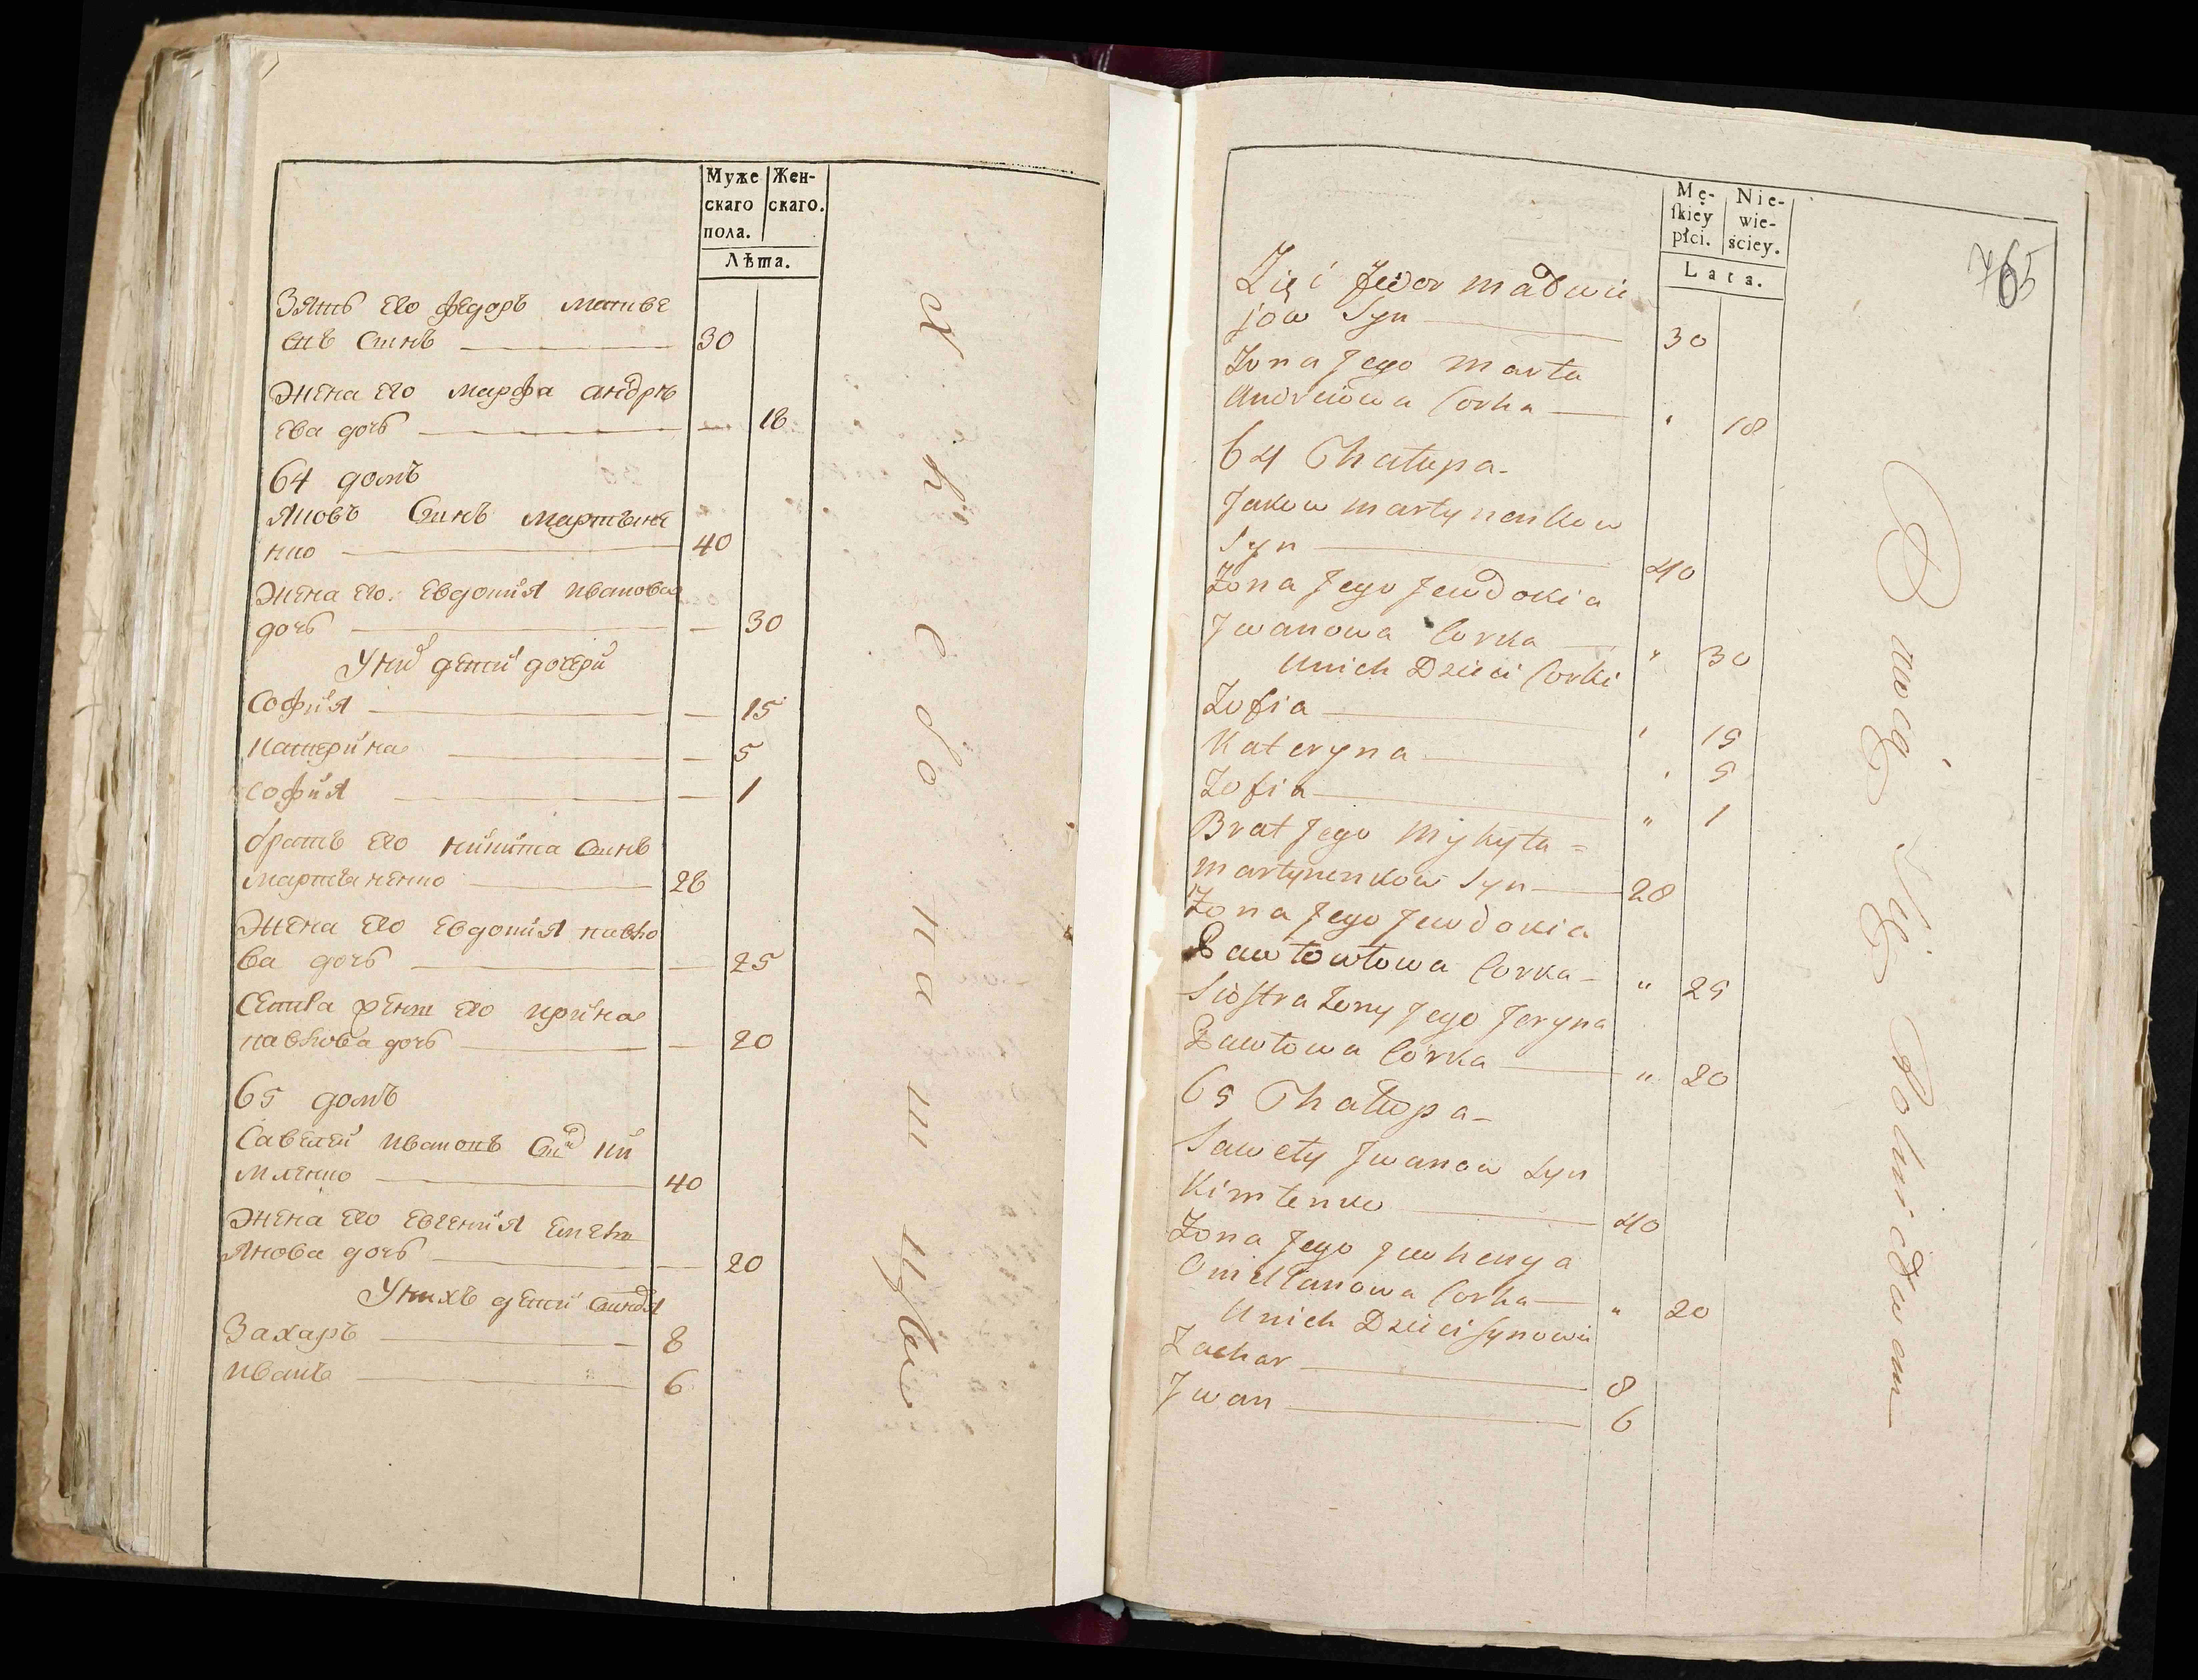 Муже
скаго
пола.
Жен-
скаго.
Лѣта.
Зять его федоръ матве
евъ синъ 30
Жена его марфа андрѣ
ева дочь — 18
64 домъ
Яковъ синъ мартыне
нко 40
Жена его евдокия иванова
дочь — 30
У них дети дочери
София — 15
катерина — 5
софия — 1
братъ его никита синъ
мартыненко 28
Жена его евдокия павло
ва дочь — 25
его ирина
павлова дочь — 20
65 домъ
Савелей ивановъ
ки
мленко 40
Жена его евгения емель
янова дочь — 20
У нихъ дети
Захаръ 8
иванъ 6
Mę-
skiey
płci.
Nie-
wie-
ściey.
Lata.
765
Zięć Fedor Matwie
jow Syn 30
Zona Jego Marta
Andreiowa Corka " 18
64 Chałupa
Jakow Martynenkow
Syn 40
Zona Jego Jewdokia
Jwanowa Corka " 30
Unich Dzieci Corki
Zofia " 15
Kateryna " 5
Zofia " 1
Brat Jego Mykyta =
Martynenkow Syn 28
Zona Jego Jewdokia
Corka " 25
Siostra Zony Jego Jeryna
Pawłowa Corka " 20
65 Chałupa
Sawely Jwanow Syn
Kimlenko 40
Zona Jego Jewhenya
Omelianowa Corka " 20
Unich Dzieci Synowie
Zachar 8
Jwan 6